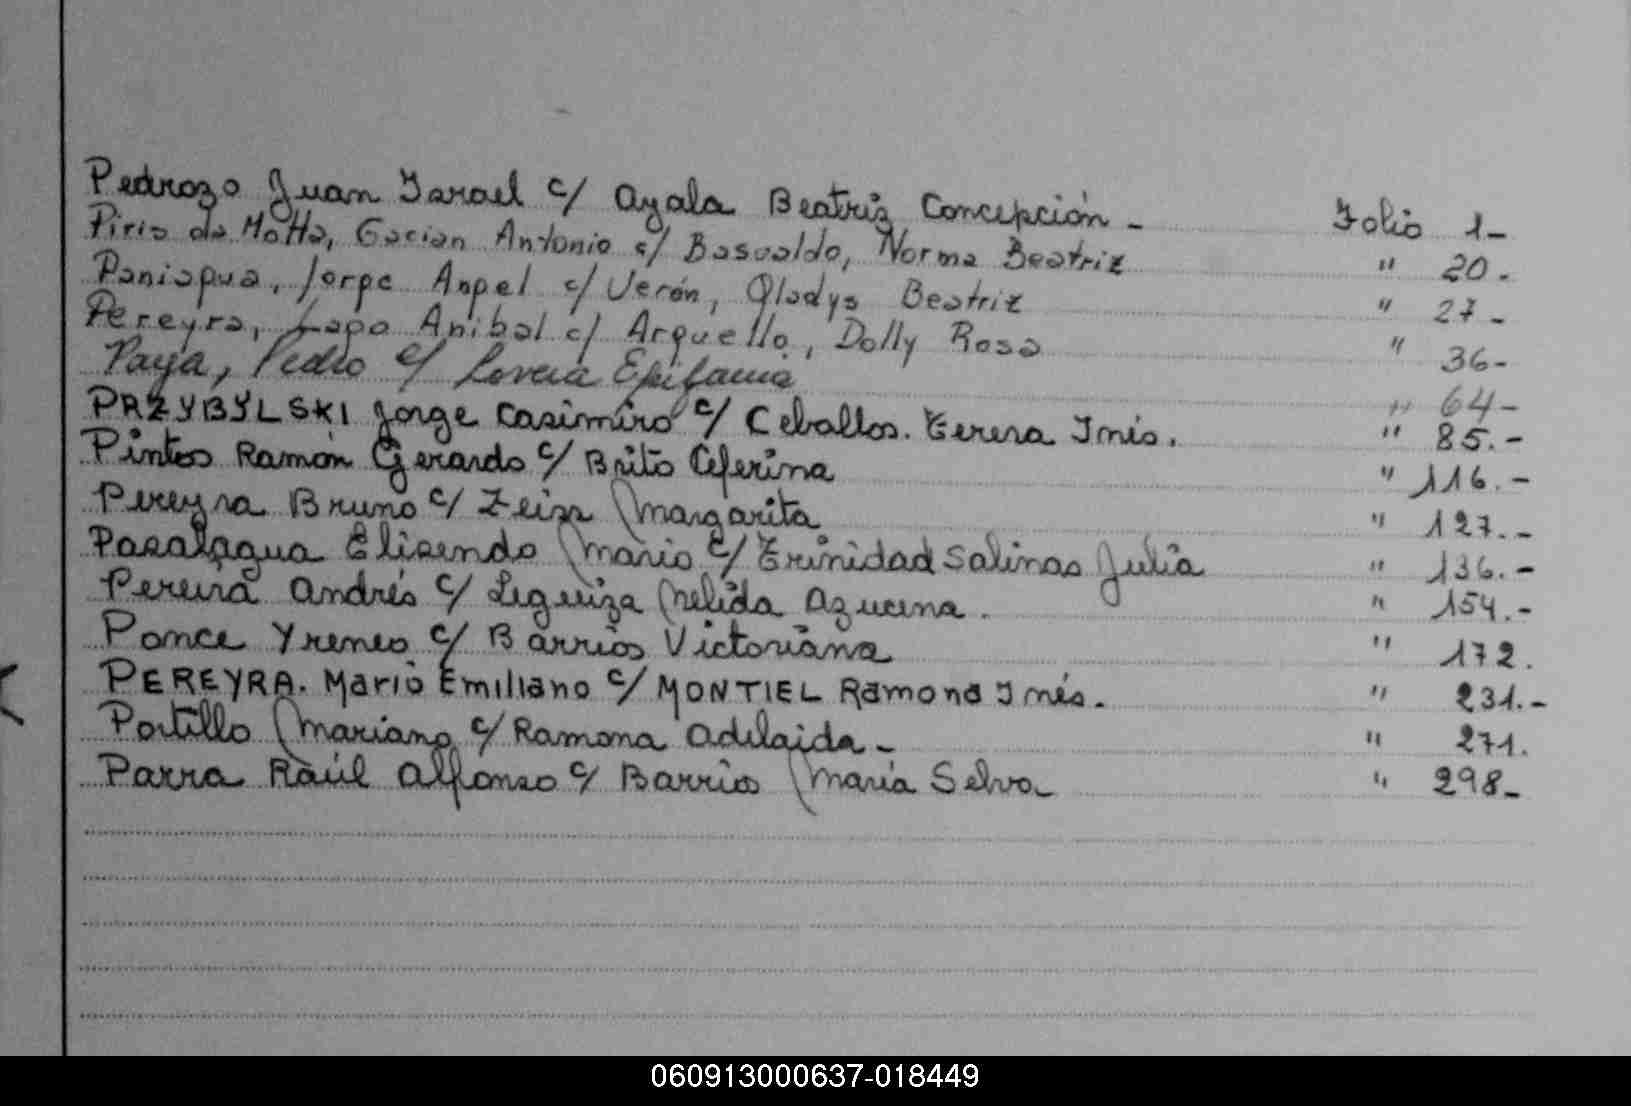 Pedrozo Juan Israel c/ Ayala Beatriz Concepción - Folio 1-
Piris da Motta, Gacian Antonio c/ Basualdo, Norma Beatriz " 20.
Paniagua, Jorge Angel c/ Verón, Gladys Beatriz " 27-
Pereyra, Anibal c/ Arguello, Dolly Rosa " 36-
Paya, Pedro c/ Lovera Epifania " 64-
PRZYBYLSKI Jorge Casimiro c/ Ceballos. Teresa Inés. " 85.-
Pintos Ramón Gerardo c/ Brito Ceferina " 116.-
Pereyra Bruno c/ Zeiss Margarita " 127.-
Elisendo Mario c/ Trinidad Salinas Julia " 136.-
Pereira Andrés c/ Leguiza Nélida Azucena. " 154.-
Ponce Yreneo c/ Barrios Victoriana " 172.
PEREYRA. Mario Emiliano c/ MONTIEL Ramona Inés. " 231.-
Portillo Mariano c/ Ramona Adelaida - " 271.
Parra Raúl Alfonso c/ Barrios María Selva " 298-
060913000637-018449